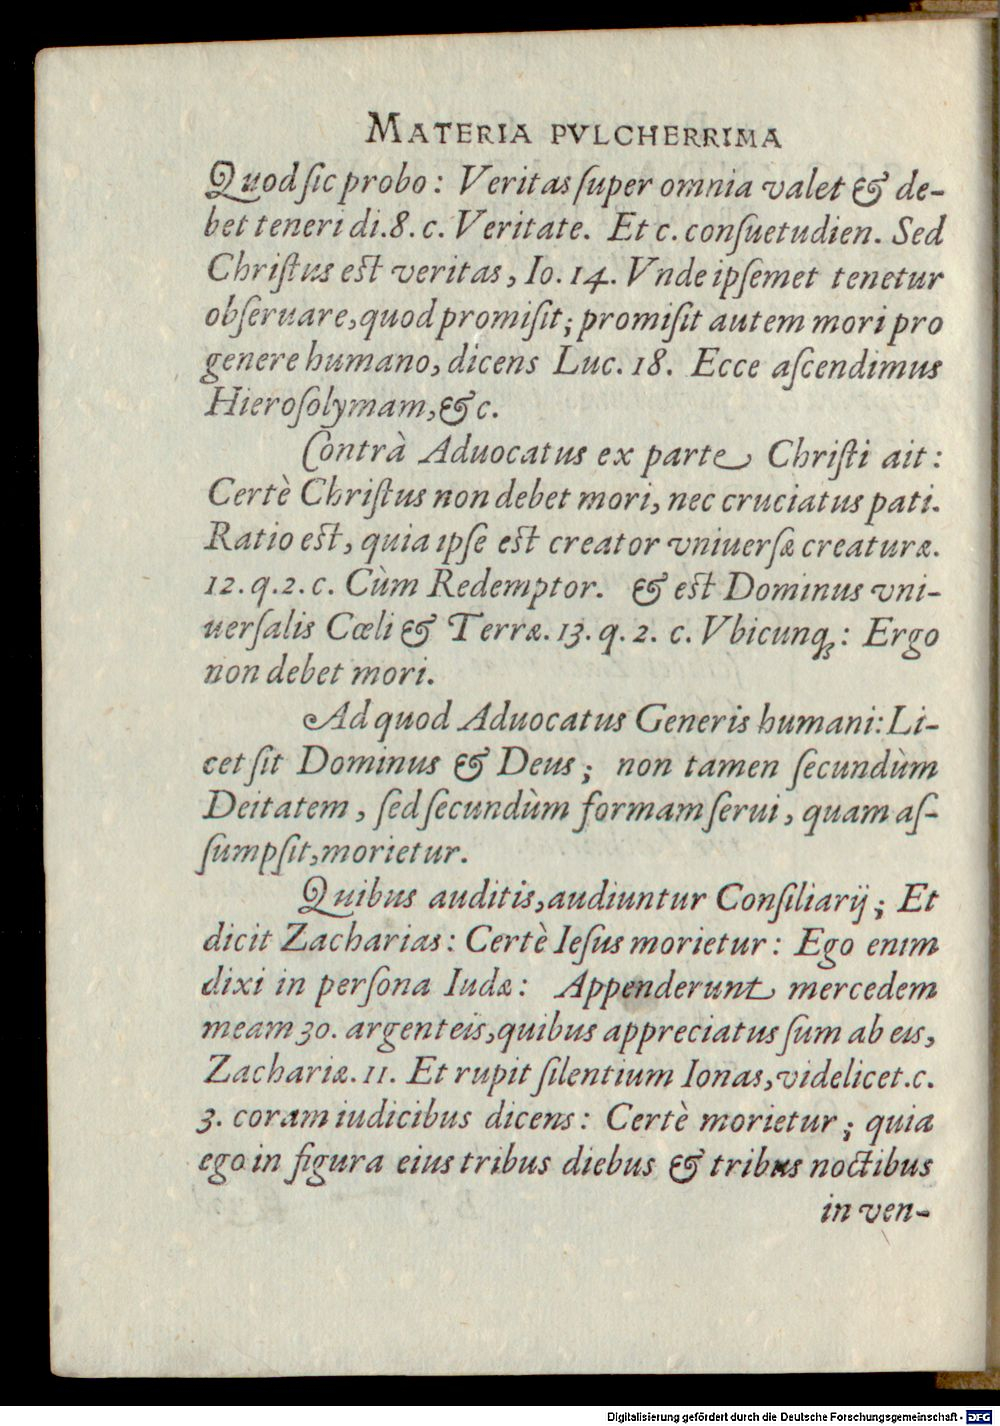 MATERIA PVLCHERRIMA
Quod ſic probo: Veritas ſuper omnia valet & de-
bet teneri di.8. c. Veritate. Et c. conſuetudien. Sed
Chriſtus eſt veritas, Io. 14. Vnde ipſemet tenetur
obſeruare, quod promiſit; promiſit autem mori pro
genere humano, dicens Luc. 18. Ecce aſcendimus
Hieroſolymam, &c.
Contrà Aduocatus ex parte Chriſti ait:
Certè Chriſtus non debet mori, nec cruciatus pati.
Ratio eſt, quia ipſe eſt creator vniuerſæ creaturæ.
12. q. 2. c. Cùm Redemptor. & eſt Dominus vni-
uerſalis Cœli & Terræ. 13. q. 2. c. Vbicunqꝫ: Ergo
non debet mori.
Ad quod Aduocatus Generis humani: Li-
cet ſit Dominus & Deus; non tamen ſecundùm
Deitatem, ſed ſecundùm formam ſerui, quam aſ-
ſumpſit, morietur.
Quibus auditis, audiuntur Conſiliarij; Et
dicit Zacharias: Certè Ieſus morietur: Ego enim
dixi in perſona Iudæ: Appenderunt mercedem
meam 30. argenteis, quibus appreciatus ſum ab eis,
Zachariæ. 11. Et rupit ſilentium Ionas, videlicet. c.
3. coram iudicibus dicens: Certè morietur; quia
ego in figura eius tribus diebus & tribus noctibus
in ven-
Digitalisierung gefördert durch die Deutsche Forschungsgemeinschaft - DFG